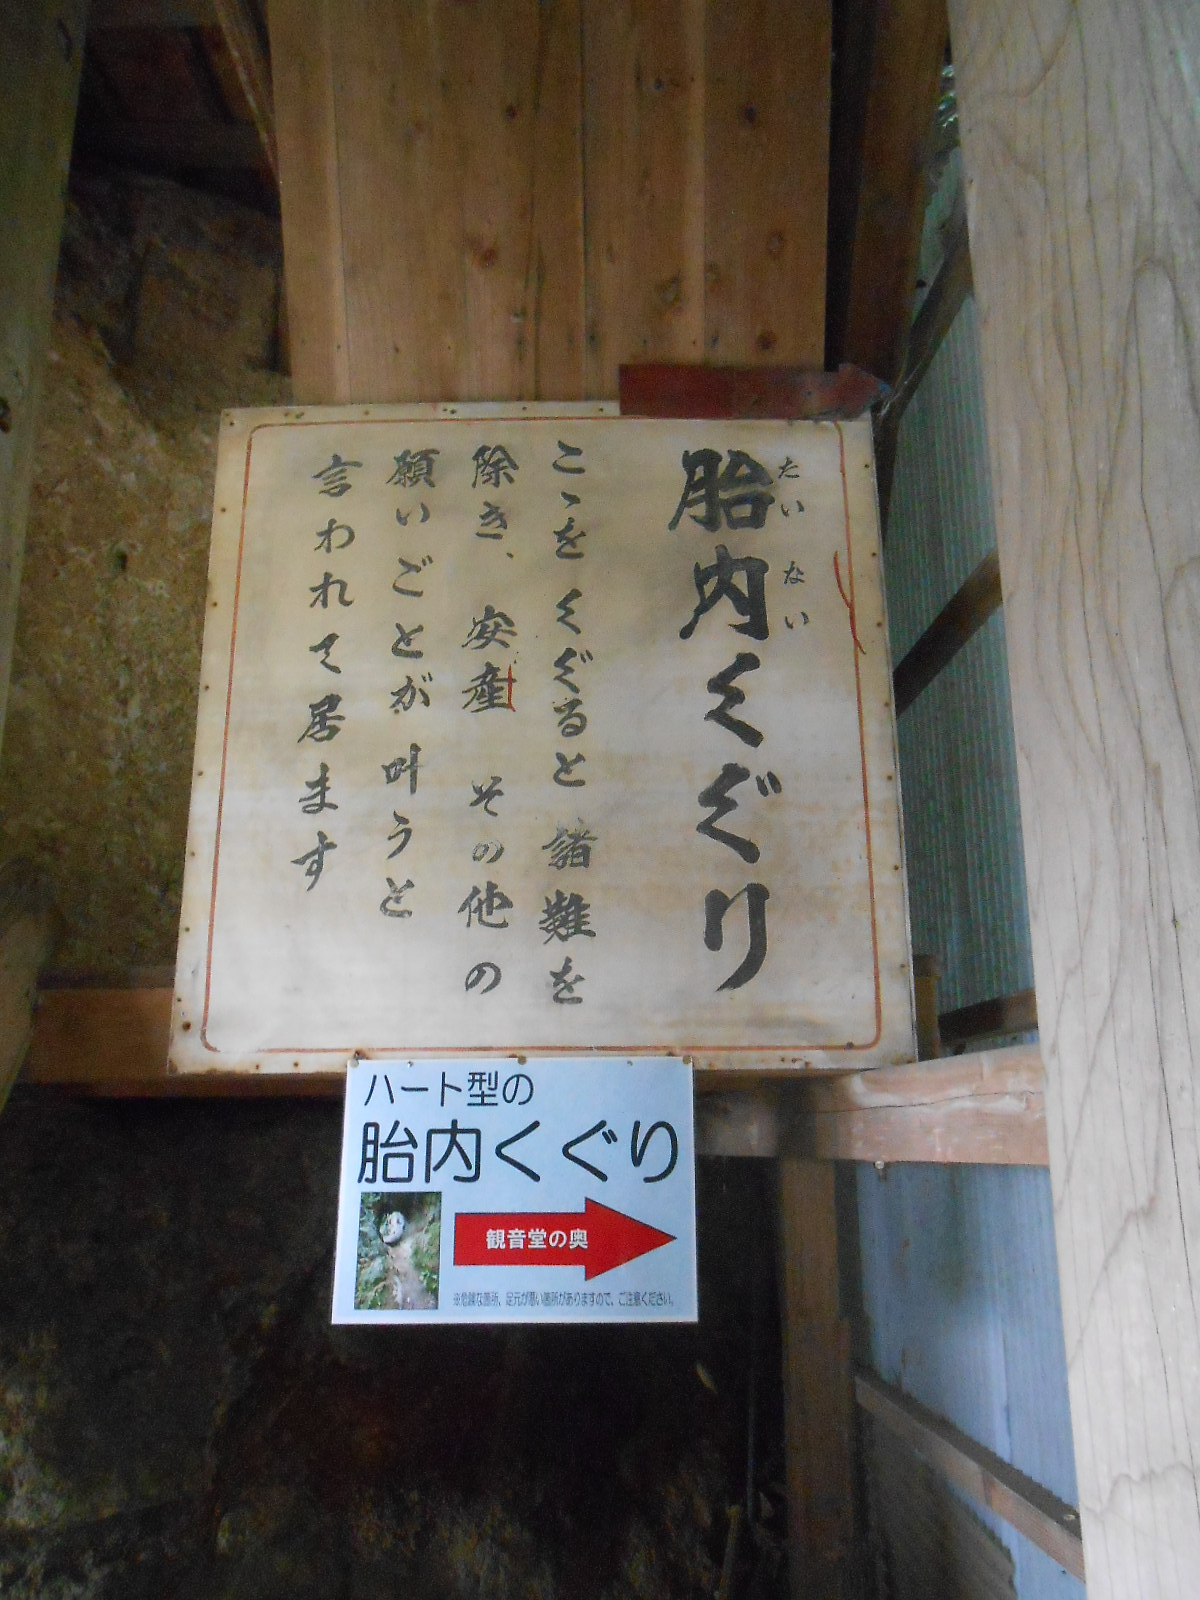 胎内くぐり
たいない
こゝをくぐると諸難を
除き、安産その他の
願いごとが叫うと
言われて居ます
ハート型の
胎内くぐり
観音堂の奥
※危険な箇所、足元が悪い箇所がありますので、ご注意ください。